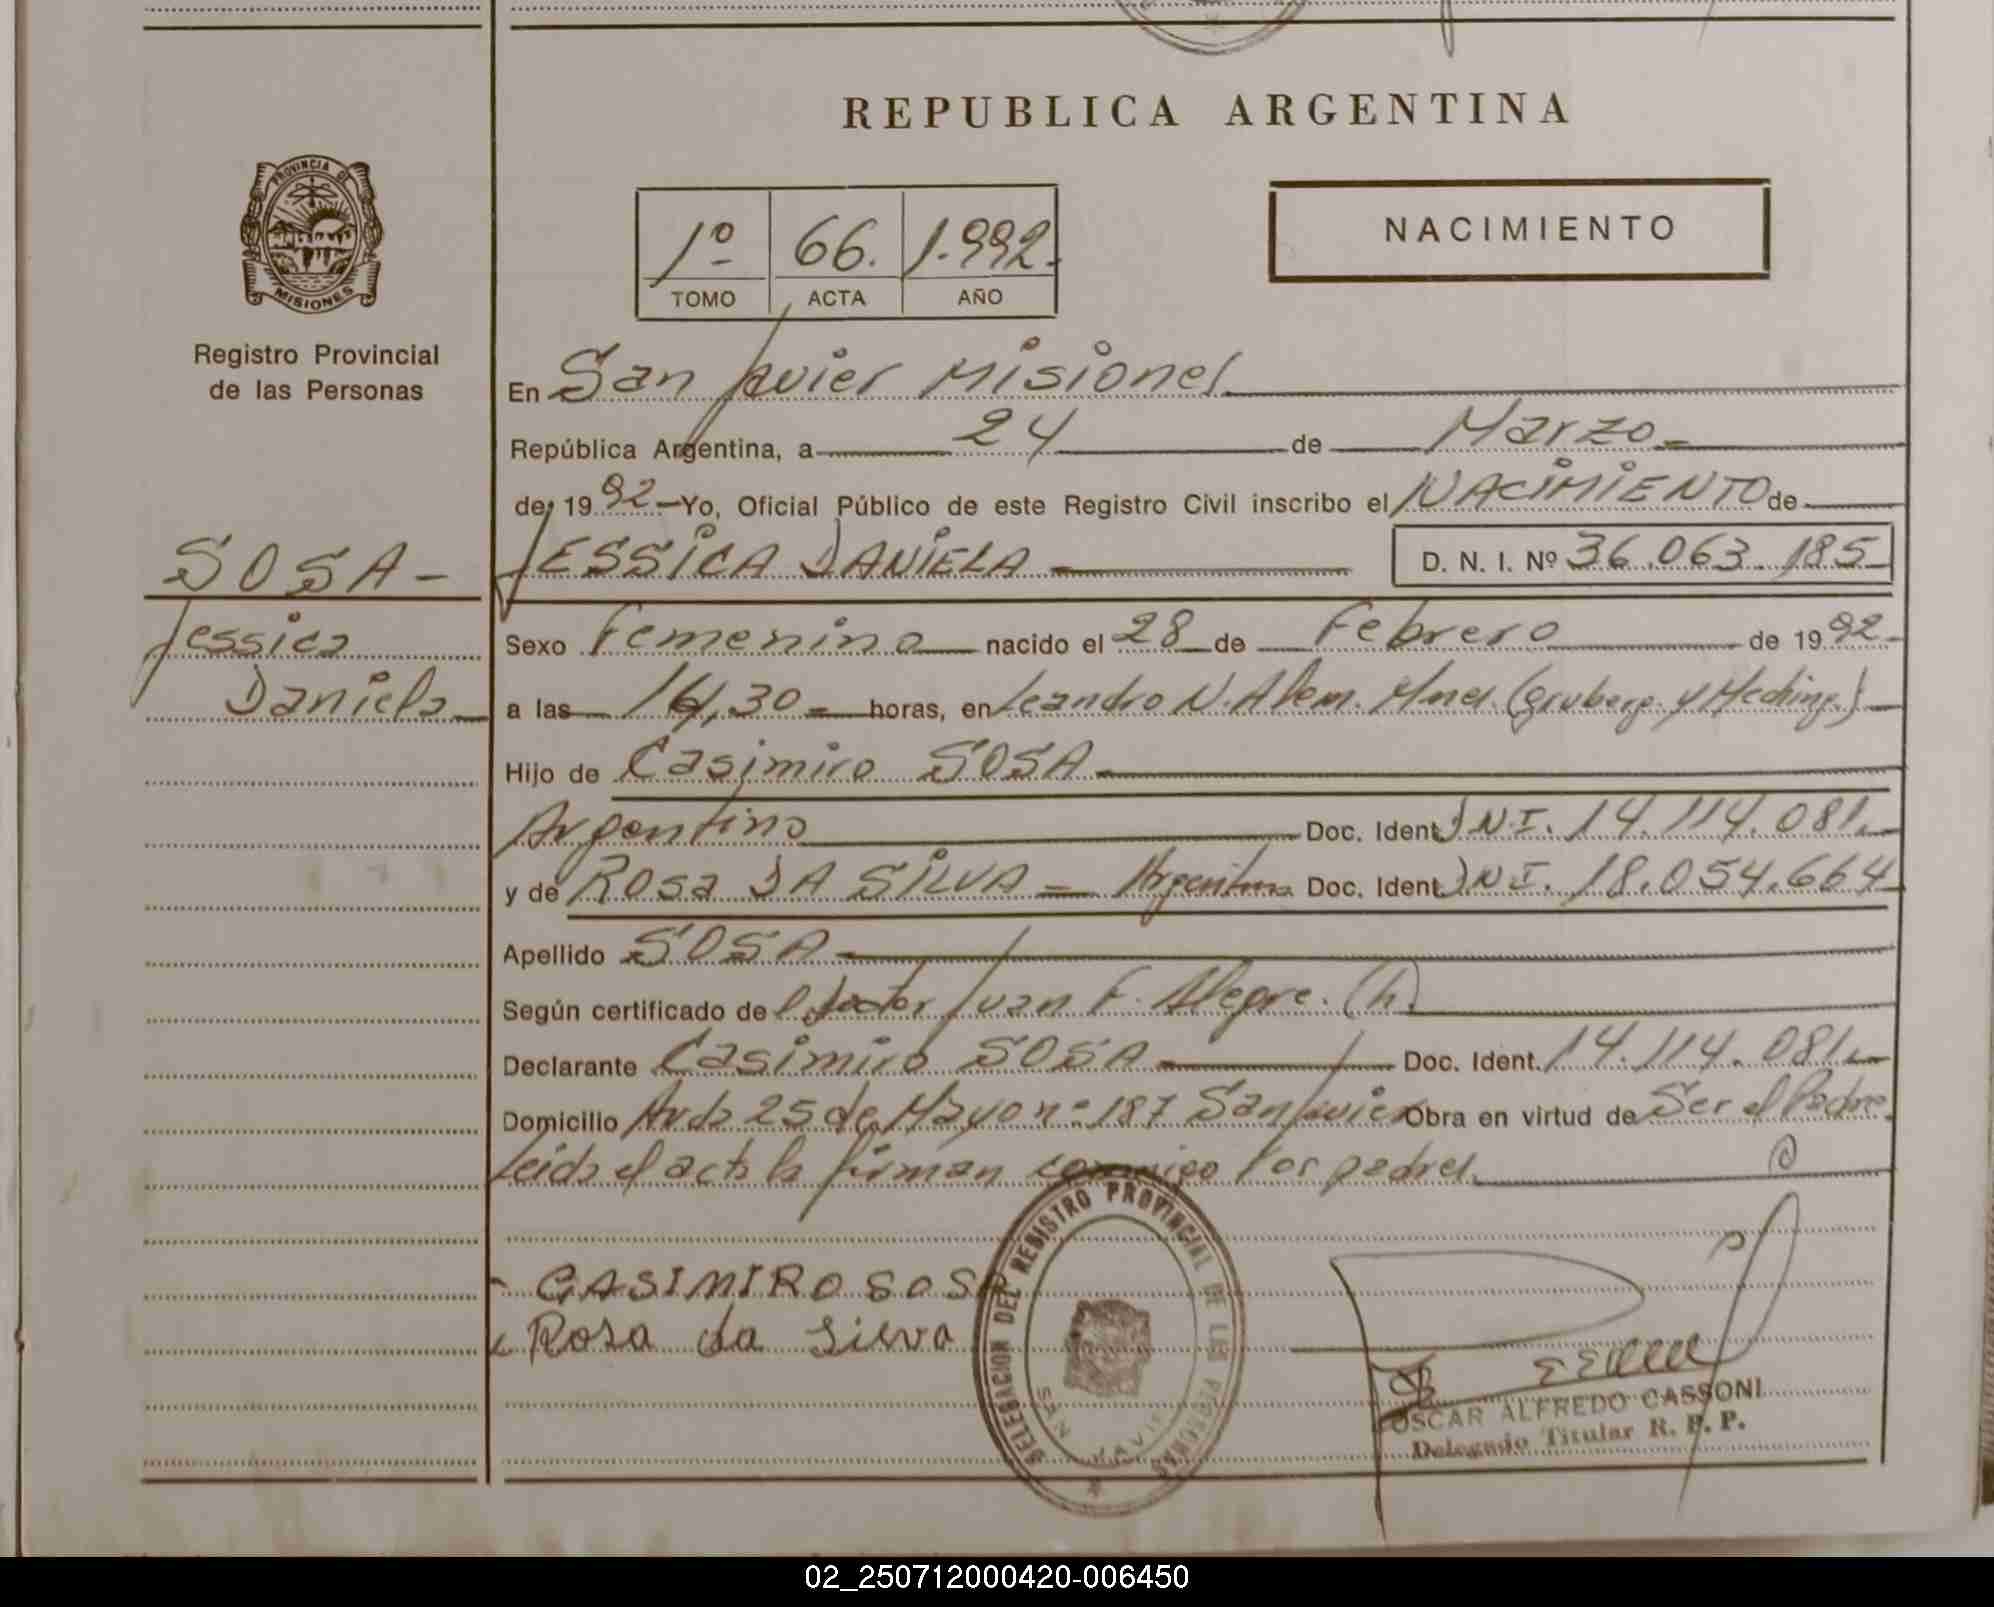 REPUBLICA ARGENTINA
PROVINCIA DE
MISIONES
Registro Provincial
de las Personas
1º 66. 1.992.
TOMO ACTA AÑO
NACIMIENTO
En San Javier Misiones
República Argentina, a 24 de Marzo
de 1992 Yo, Oficial Público de este Registro Civil inscribo el NACIMIENTO de
SOSA -
JESSICA DANIELA D. N. I. Nº 36.063.185
Jessica
Daniela
Sexo Femenino nacido el 28 de Febrero de 1992
a las 14,30 horas, en Leandro N. Alem. Mnes.
Hijo de Casimiro SOSA
Argentino Doc. Ident. DNI. 14.114.081
y de Rosa DA SILVA Argentina Doc. Ident. DNI. 18.054.664
Apellido SOSA
Según certificado de Doctor Juan F. Alegre. (h)
Declarante Casimiro SOSA Doc. Ident. 14.114.081
Domicilio Avda 25 de Mayo nº 187 San Javier Obra en virtud de Ser el Padre
Leida el acta la firman conmigo los padres
CASIMIRO SOSA
Rosa da Silva
DELEGACION DEL REGISTRO PROVINCIAL DE LAS PERSONAS
SAN JAVIER
OSCAR ALFREDO CASSONI
Delegado Titular R. P. P.
02_250712000420-006450